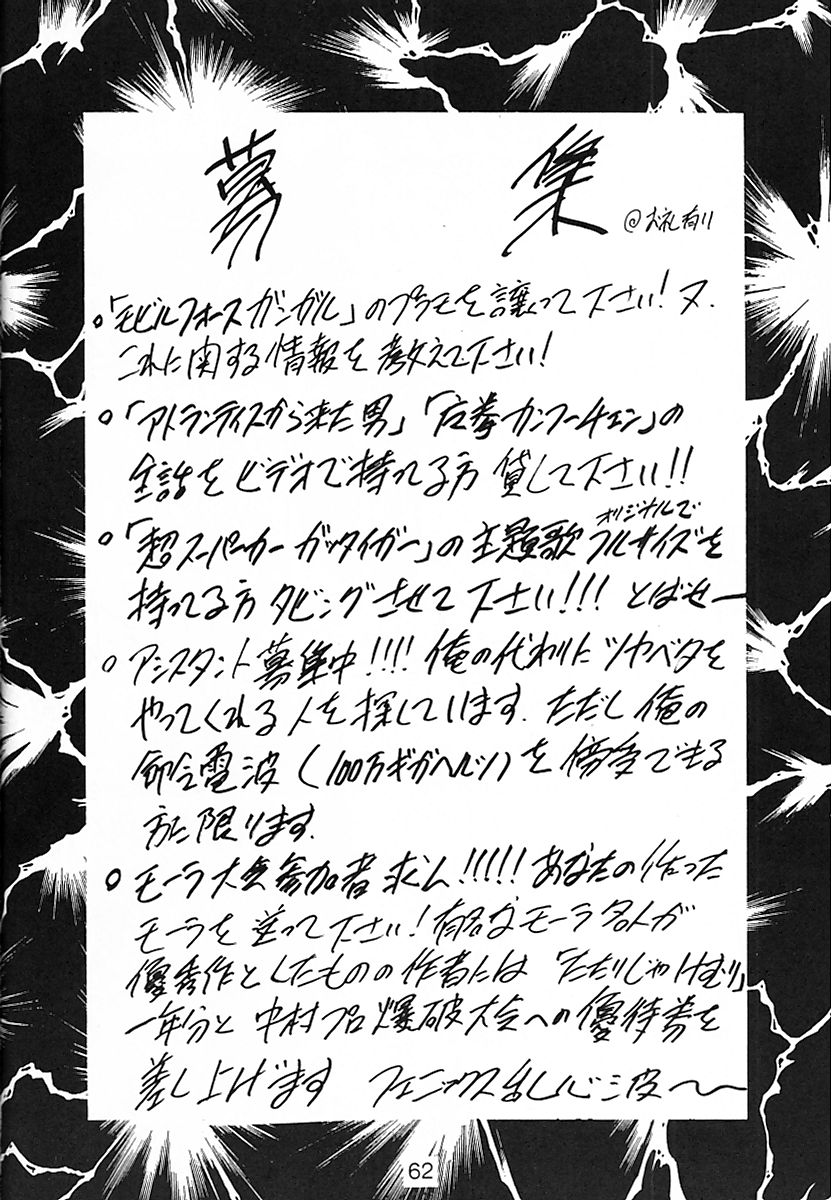 募集 @お礼有り
○「モビルフォースガンガル」のプラモを譲って下さい!又、
これに関する情報を教えて下さい!
○「アトランティスから来た男」「右拳カンフーチェン」の
全話をビデオで持ってる方貸して下さい!!
○「超スーパーカーガッタイガー」の主題歌オリジナルでフルサイズを
持ってる方ダビングさせて下さい!!!とばせー
○アシスタント募集中!!!!俺の代わりにツヤベタを
やってくれる人を探しています。ただし俺の
命令電波(100万ギガヘルツ)を傍受できる
方に限ります。
○モーラ大会参加者求ム!!!!!あなたの作った
モーラを塗って下さい!有名なモーラ名人が
優秀作としたものの作者には「たたりじゃけむり」
一年分と中村プロ爆破大会への優待券を
差し上げます フェニックス乱心波〜
62